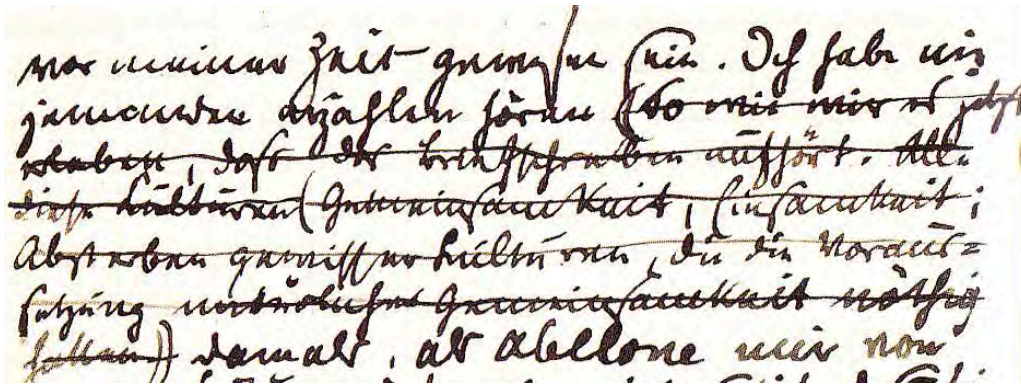 vor meiner Zeit gewesen sein. Ich habe nie
jemanden erzählen hören (So wie wir es jetzt
erleben, dass das Briefschreiben aufhört. Alle
diese Kulturen (Gemeinsamkeit, Einsamkeit;
Absterben gewisser Kulturen, die die Voraus=
setzung Gemeinsamkeit nöthig
hatten)) damals, als Abelone mir von